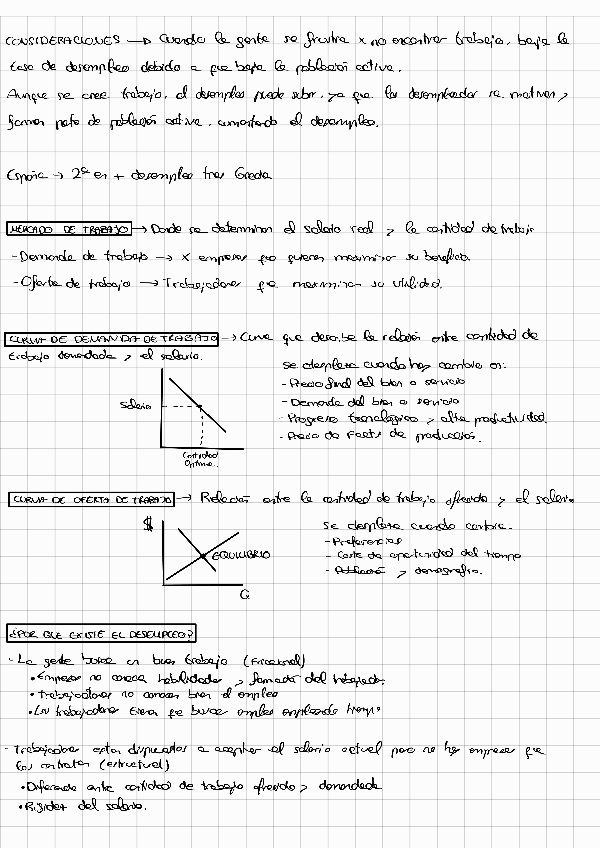 CONSIDERACIONES → Cuando la gente se frustra x no encontrar trabajo, baja la
tasa de desempleo debido a que baja la población activa.
Aunque se cree trabajo, el desempleo puede subir, ya que los desempleados se motivan y
forman parte de población activa, aumentando el desempleo.
España → 2ª en + desempleo tras Grecia
MERCADO DE TRABAJO → Donde se determinan el salario real y la cantidad de trabajo
- Demanda de trabajo → x empresas que quieren maximizar su beneficio.
- Oferta de trabajo → Trabajadores que maximizan su utilidad.
CURVA DE DEMANDA DE TRABAJO → Curva que describe la relación entre cantidad de
trabajo demandada y el salario.
Se desplaza cuando hay cambios en:
- Precio final del bien o servicio
- Demanda del bien o servicio
- Progreso tecnológico y alta productividad.
- Precio de Facts de producción.
Salario
Cantidad
Óptima.
CURVA DE OFERTA DE TRABAJO → Relación entre la cantidad de trabajo ofrecida y el salario
Se desplaza cuando cambia.
- Preferencias
- Coste de oportunidad del tiempo
- Población y demografia.
$
EQUILIBRIO
Q
¿POR QUE EXISTE EL DESEMPLEO?
- La gente busca un buen trabajo (Friccional)
• Empresas no conocen habilidades y formación del trabajador
• Trabajadores no conocen bien el empleo
• Los trabajadores tienen que buscar empleo empleando tiempo
- Trabajadores estan dispuestos a aceptar el salario actual pero no hay empresas que
los contraten (estructural)
• Diferencia entre cantidad de trabajo ofrecida y demandada
• Rigidez del salario.